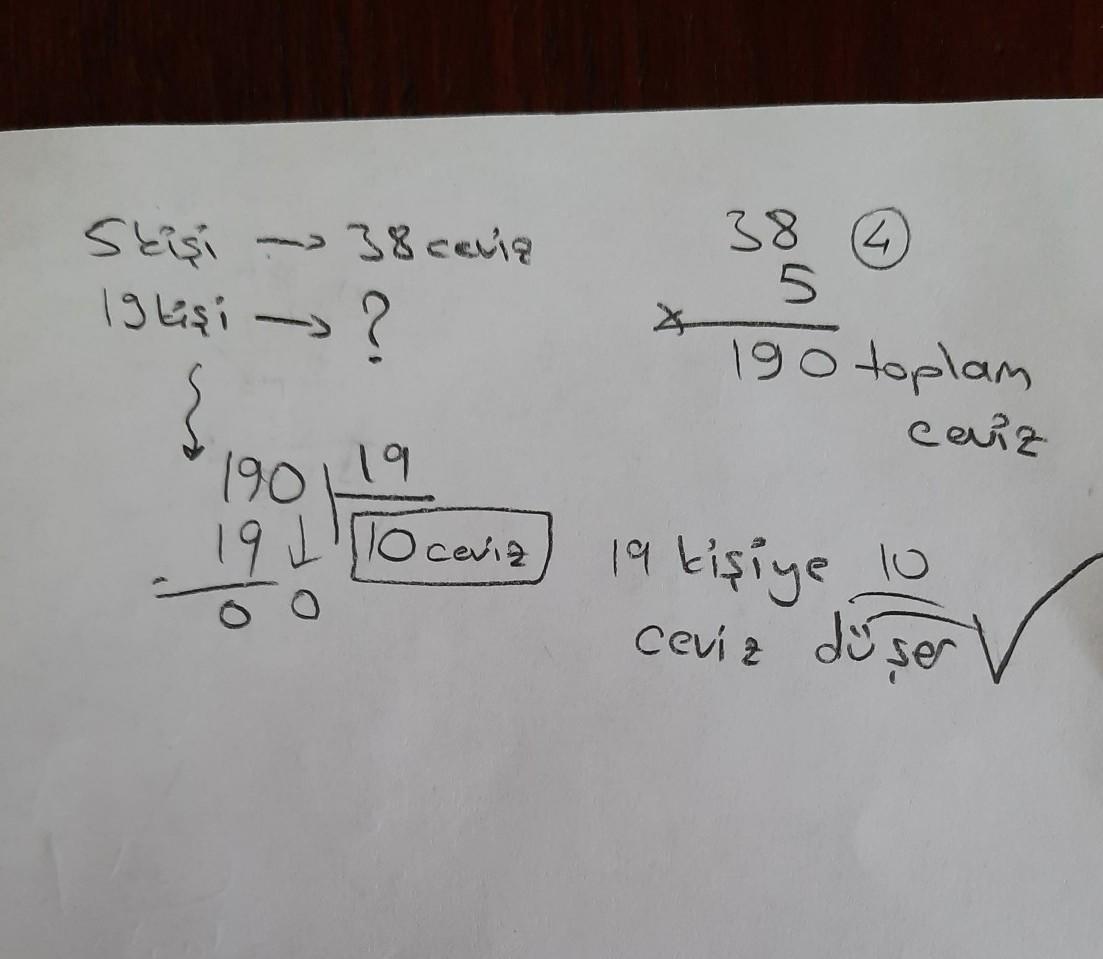 5 kişi → 38 ceviz
19 kişi → ?
190 19
19 ↓ 10 ceviz
- 0 0
38 ④
5
x
190 toplam
ceviz
19 kişiye 10
ceviz düşer ✓